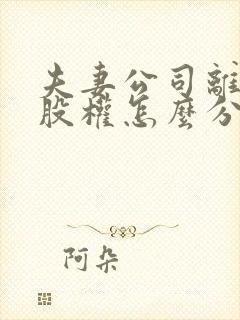 夫妻公司離
股權怎麼分
阿朵